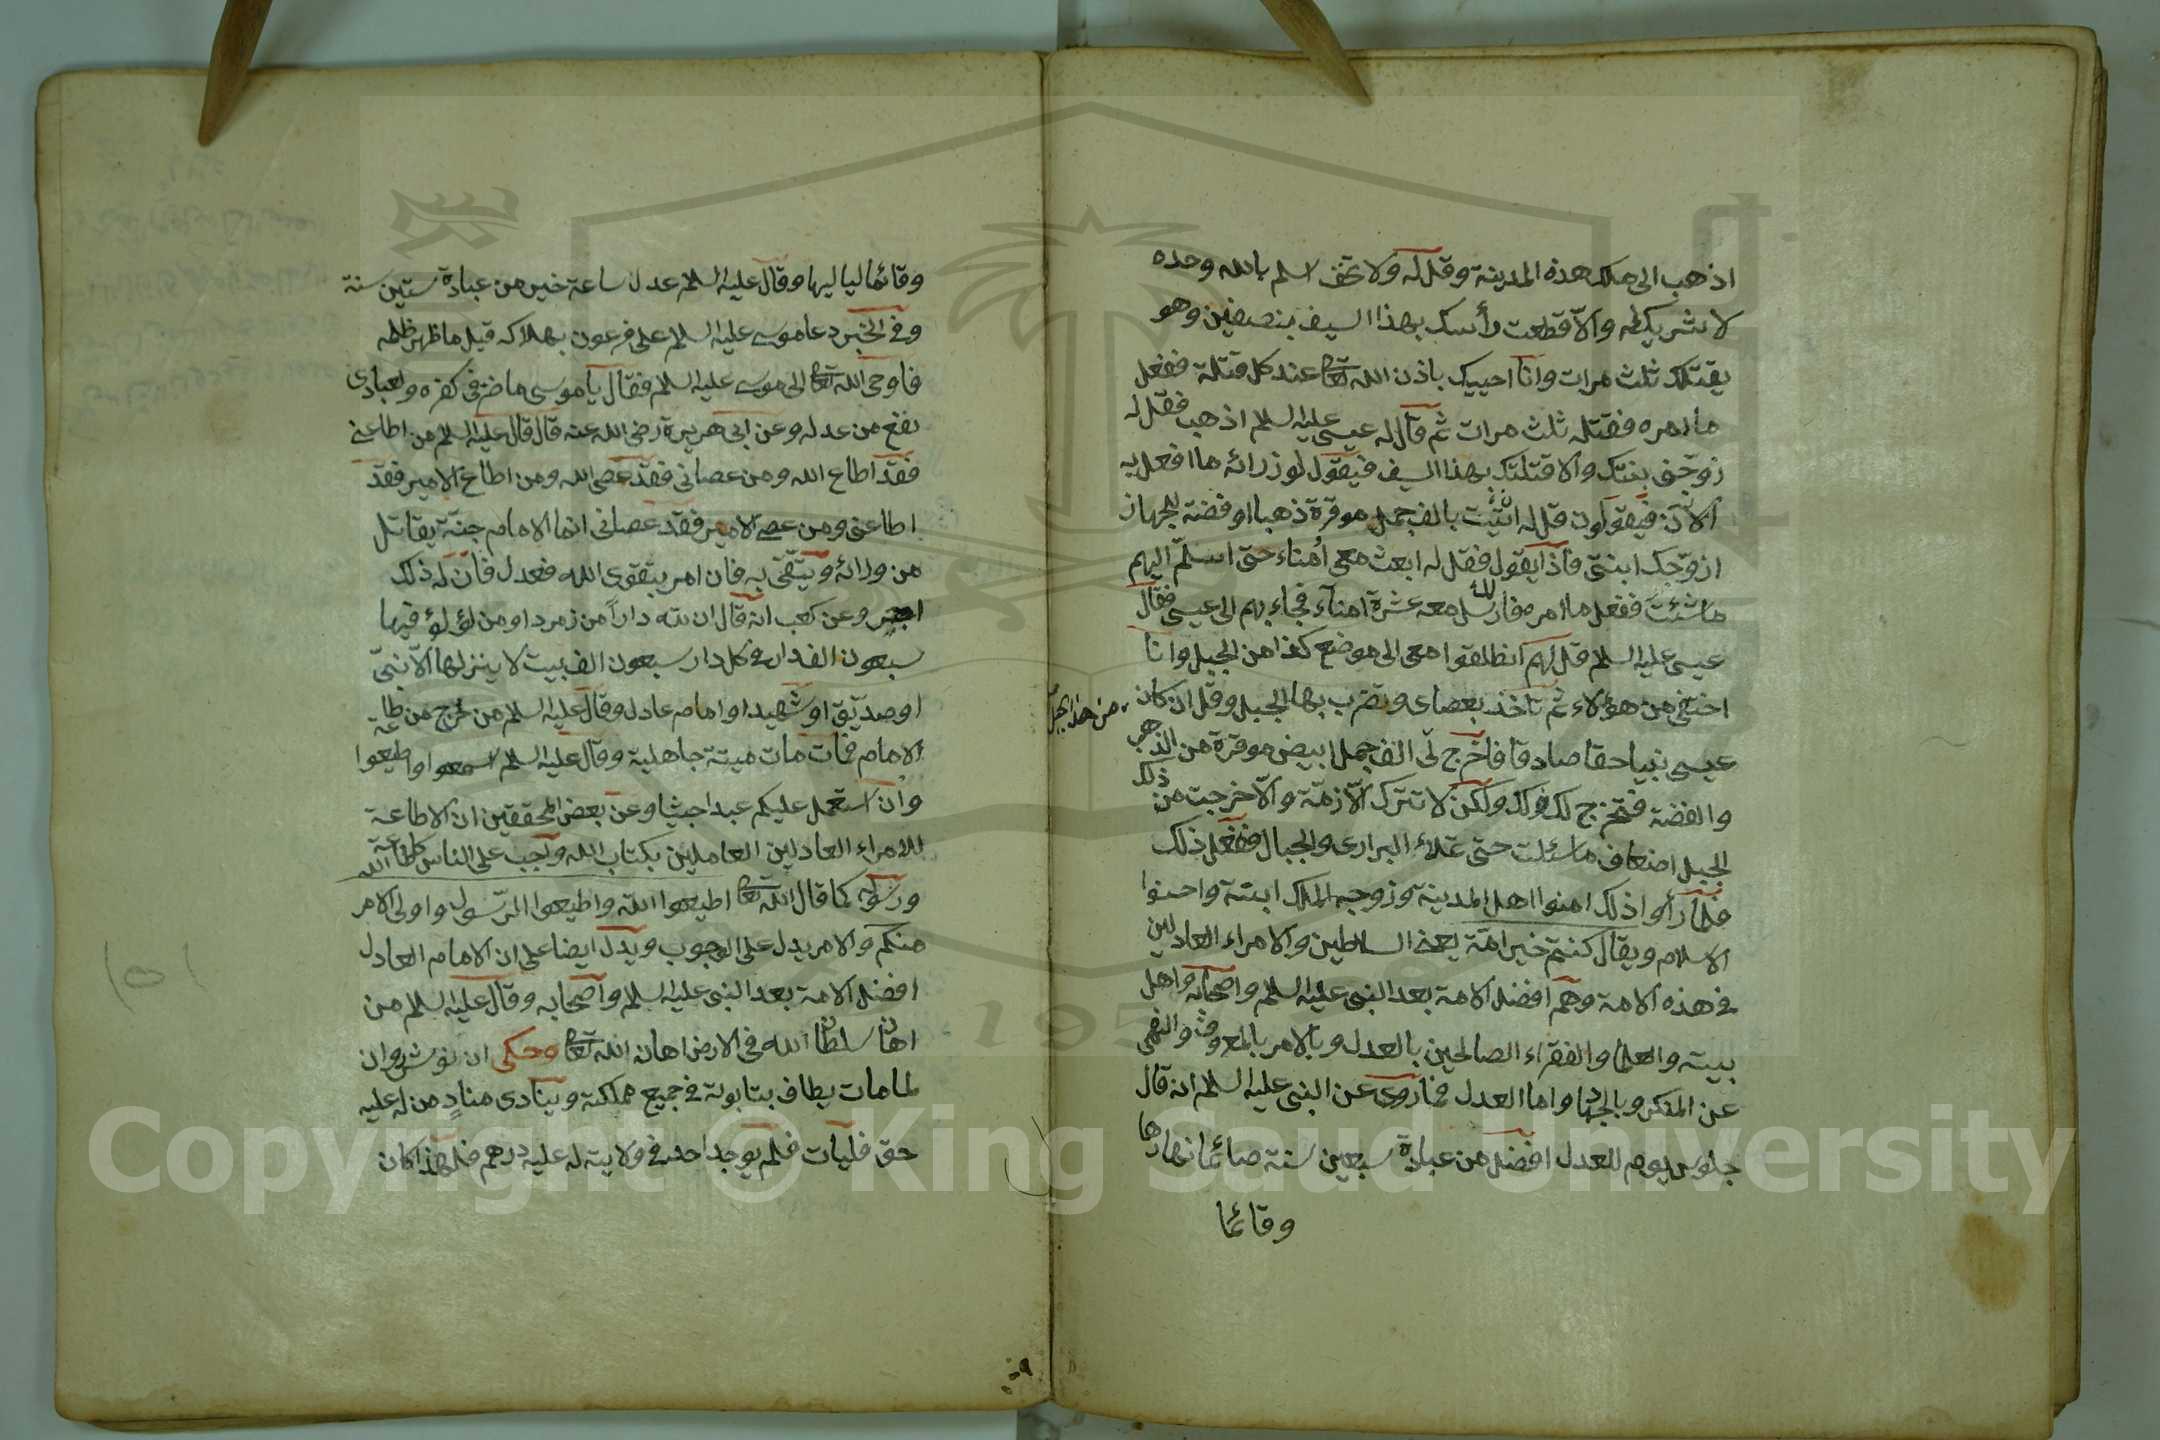 اذهب الى ملك هذه المدينة وقل له ولا تخف اسلم بالله وحده
لا شريك له والا قطعت رأسك بهذا السيف بنصفين وهو
يقتلك ثلث مرات وانا احييك باذن الله تعالى عند كل قتلة ففعل
ما امره فقتله ثلث مرات ثم قال له عيسى عليه السلم اذهب فقل له
زوجنى بنتك والا قتلتك بهذا السيف فيقول لوزرائه ما افعل به
الآن فيقولون قل له ان أتيت بالف جمل موقرة ذهبا او فضة لجهاز
ازوجك ابنتى فاذا يقول فقل له ابعث معى أمناء حتى اسلم اليهم
ما شئت ففعل ما امره فارسل الملك معه عشرة امناء فجاء بهم الى عيسى فقال
عيسى عليه السلم قل لهم انطلقوا معى الى موضع كذا من الجبل وانا
اختفى من هؤلاء ثم تأخذ بعصاى وتضرب بها الجبل وقل ان كان
من هذا الجبل
عيسى نبيا حقا صادقا فاخرج لى الف جمل ابيض موقرة من الذهب
والفضة فتخرج لك ذلك ولكن لا تترك الازمة والا خرجت من ذلك
الجبل اضعاف ما سئلت حتى تملاء البرارى والجبال ففعل ذلك
فلما رأوا ذلك امنوا اهل المدينة وزوجه الملك ابنته واحسنوا
الاسلام ويقال كنتم خير امة يعنى السلاطين والامراء العادلين
فى هذه الامة وهم افضل الامة بعد النبى عليه السلم واصحابه واهل
بيته والعلما والفقراء الصالحين بالعدل وبالامر بالمعروف والنهى
عن المنكر وبالجهاد واما العدل فما روى عن النبى عليه السلم انه قال
جلوس يوم للعدل افضل من عبادة سبعين سنة صائما نهارها
وقائما
وقائما لياليها وقال عليه السلم عدل ساعة خير من عبادة ستين سنة
وفى الخبر دعا موسى عليه السلم على فرعون بهلاكه قيل ما ظهر ظلمه
فاوحى الله تعالى الى موسى عليه السلم فقال يا موسى ما ضرنى كفره ولعبادى
نفع من عدله وعن ابى هريرة رضى الله عنه قال قال عليه السلم من اطاعنى
فقد اطاع الله ومن عصانى فقد عصى الله ومن اطاع الامير فقد
اطاعنى ومن عصى الامير فقد عصانى انما الامام جنة يقاتل
من ورائه ويتقى به فان امر بتقوى الله فعدل فان له ذلك
اجر وعن كعب انه قال ان لله دارا من زمرد او من لؤلؤ فيها
سبعون الف دار فى كل دار سبعون الف بيت لا ينزلها الا نبى
او صديق او شهيد او امام عادل وقال عليه السلم من خرج من طاعة
الامام فمات مات ميتة جاهلية وقال عليه السلم اسمعوا واطيعوا
وان استعمل عليكم عبد احبشيا وعن بعض المحققين ان الاطاعة
للامراء العادلين العاملين بكتاب الله وتجب على الناس كطاعة الله
ورسوله كما قال الله تعالى اطيعوا الله واطيعوا الرسول واولى الامر
منكم والامر يدل على الوجوب ويدل ايضا على ان الامام العادل
افضل الامة بعد النبى عليه السلم واصحابه وقال عليه السلم من
اهان سلطان الله فى الارض اهان الله تعالى وحكى ان نوشروان
لما مات يطاف بتابوته فى جميع مملكته وينادى مناد من له عليه
حق فليأت فلم يوجد احد فى ولايته له عليه درهم فلهذا كان
1957
Copyright © King Saud University